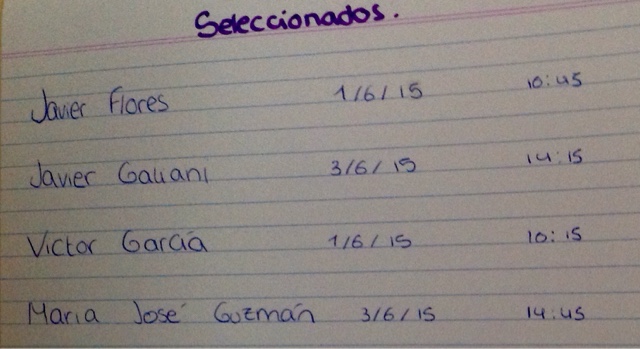 Seleccionados.
Javier Flores 1/6/15 10:45
Javier Galiani 3/6/15 14:15
Victor García 1/6/15 10:15
Maria José Guzmán 3/6/15 14:45